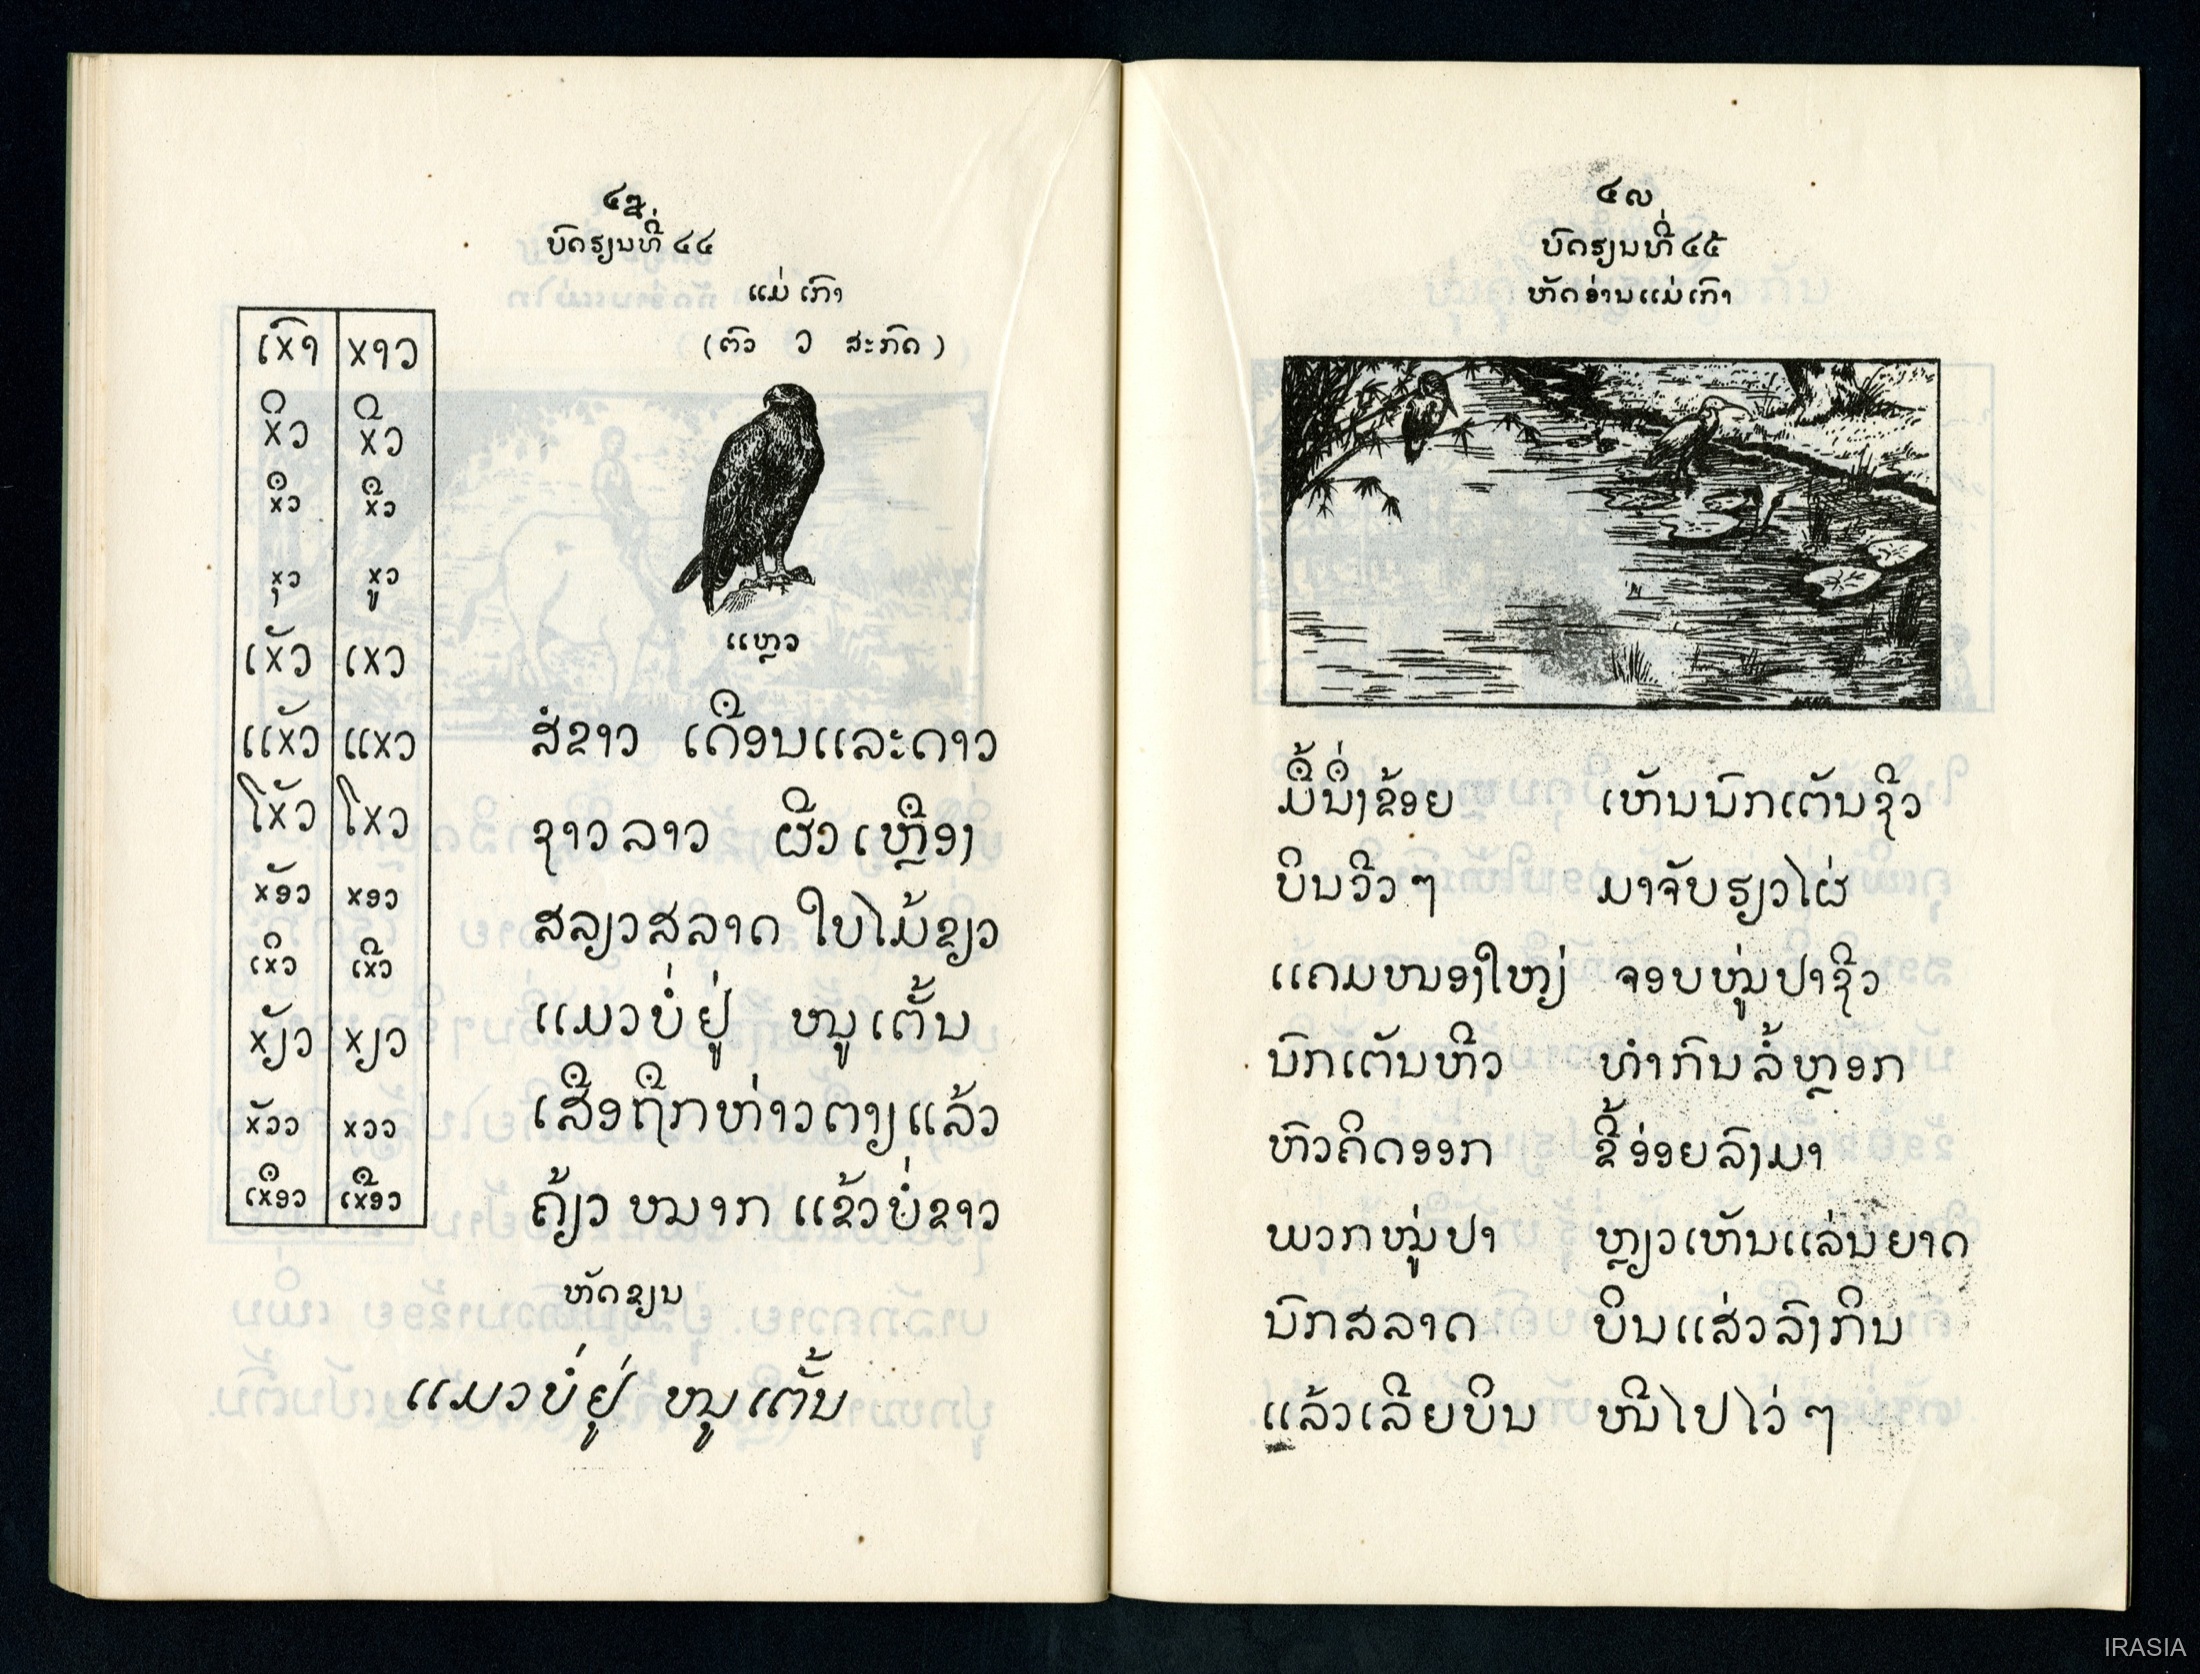 ໔໘
ບົດຮຽນທີ່ ໔໔
ແມ່ ເກົາ
(ຕົວ ວ ສະກົດ)
ເxົາ xາວ
xິວ xີວ
xຶວ xືວ
xຸວ xູວ
ເxັວ ເxວ
ແxັວ ແxວ
ໂxັວ ໂxວ
xັອວ xອວ
ເxິວ ເxີວ
xັຽວ xຽວ
xັວວ xວວ
ເxຶອວ ເxືອວ
ແຫຼວ
ສໍຂາວ ເດືອນແລະດາວ
ຊາວລາວ ຜີວເຫຼືອງ
ສລຽວສລາດ ໃບໄມ້ຂຽວ
ແມວບໍ່ຢູ່ ໜູເຕັ້ນ
ເສືອຖືກຫ່າວຕາຽແລ້ວ
ຄ້ຽວ ໝາກ ແຂ້ວບໍ່ຂາວ
ຫັດຂຽນ
ແມວບໍ່ຢູ່ ໜູເຕັ້ນ
໔໙
ບົດຮຽນທີ່ ໔໕
ຫັດອ່ານແມ່ເກົາ
ມື້ນຶ່ງຂ້ອຍ ເຫັນນົກເຕັນຊີວ
ບິນວີວໆ ມາຈັບຮຽວໄຜ່
ແຄມໜອງໃຫຽ່ ຈອບໝູ່ປາຊີວ
ນົກເຕັນຫີວ ທຳກົນລໍ້ຫຼອກ
ຫົວຄິດອອກ ຂີ້ອ່ອຍລົງມາ
ພວກໝູ່ປາ ຫຼຽວເຫັນແລ່ນຍາດ
ນົກສລາດ ບິນແສ່ວລົງກິນ
ແລ້ວເລີຍບິນ ໜີໄປໄວ່ໆ
IRASIA